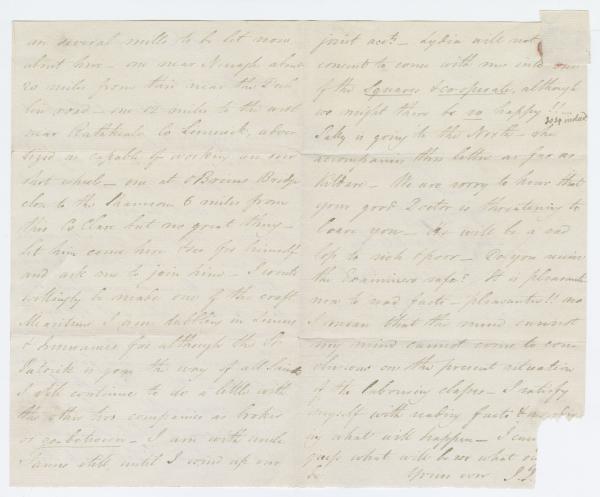 are several mills to be let now
about here - one near Nenagh about
20 miles from this near the Dub
lin road - one 12 miles to the west
near Co Limerick, adver
tized as capable of working an over
shot wheel - one at O'Briens Bridge
close to the Shannon 6 miles from
this Co Clare but no great thing -
let him come here & see for himself
and ask me to join him - I would
willingly be made one of the craft
Meantime I am dabbling in
& Insurances for although the St
Patrick is gone the way of all
I still continue to do a little with
the other two companies as broker
or go-between - I am with uncle
James still until I wind up our
joint accts - Lydia will not
consent to come with me into one
of the Squares & co-operate, although
we might there be so happy!!
indeed
Sally is going to the North - she
accompanies this letter as far as
Kildare - We are sorry to hear that
your good Doctor is threatening to
leave you - it will be a sad
loss to rich & poor - Do you receive
the Examiners safe? It is pleasant
now to read facts - pleasanter!! no
I mean that the mind cannot
my mind cannot come to con
clusions on the present situation
of the labouring classes - I satisfy
myself with reading facts &
ing what will happen - I can
guess what will be or what
be Yours ever J